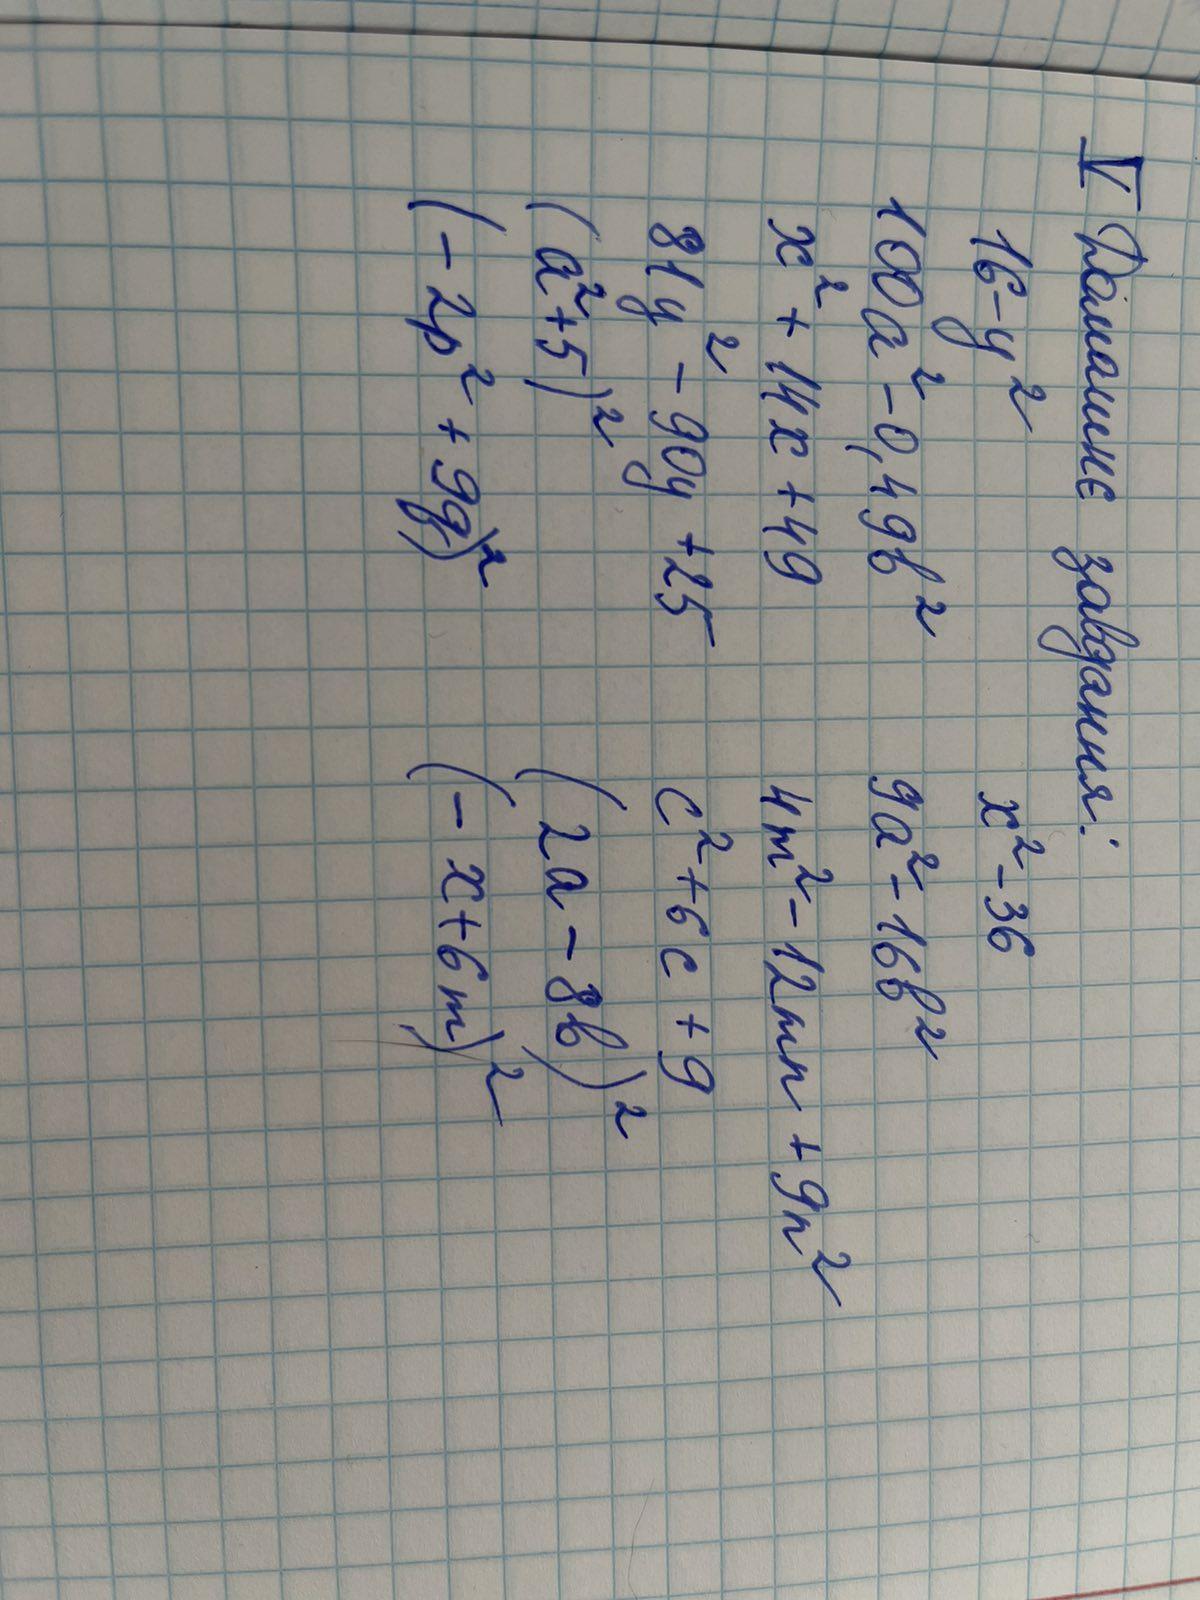 V Домашнє завдання:
16-y² x²-36
100a²-0,49b² 9a²-16b²
x²+14x+49 4m²-12mn+9n²
81y²-90y+25 c²+6c+9
(a²+5)² (2a-8b)²
(-2p²+9q)² (-x+6m)²